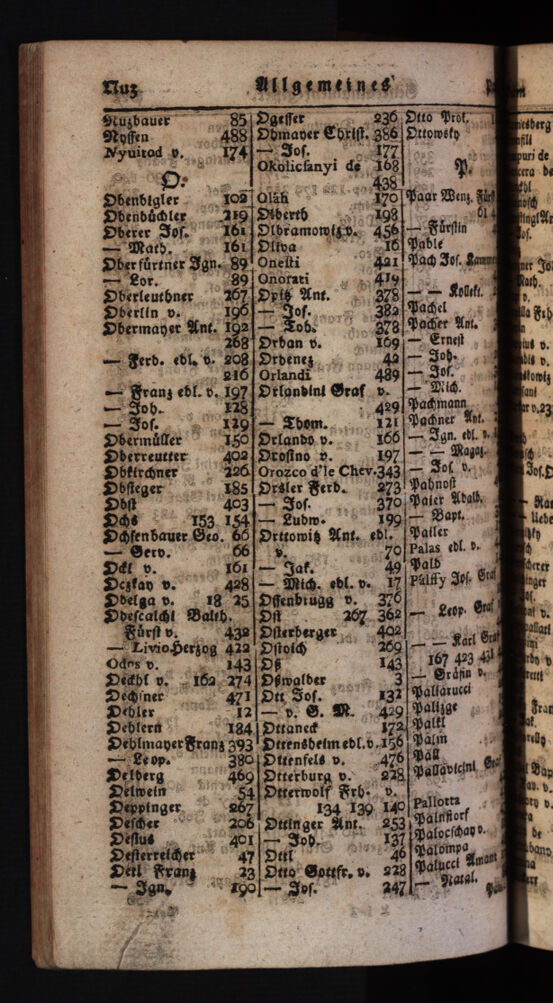 Nuz
Allgemeines
Nuzbauer 85
Nyssen 488
Nyuitod v. 174
O.
Obenbigler 102
Obenbüchler 219
Oberer Jos. 161
— Math. 161
Oberfürtner Ign. 89
— Lor. 89
Oberleuthner 267
Oberlin v. 196
Obermayer Ant. 192
268
— Ferd. edl. v. 208
216
— Franz edl v. 197
— Joh. 128
— Jos. 129
Obermüller 150
Oberreutter 402
Obkirchner 226
Obsteger 185
Obst 403
Ochs 153 154
Ochsenbauer Geo. 66
— Gerv. 66
Ockl v. 161
Oczkay v. 428
Odelga v. 18 25
Odescalchi Balth.
Fürst v. 432
— Livio Herzog 422
Odos v. 143
Oeckhl v. 162 274
Oechsner 471
Oehler 12
Oehlern 184
Oehlmayer Franz 393
— Leop. 380
Oelberg 469
Oelwein 54
Oeppinger 267
Oescher 206
Oeslus 401
Oesterreicher 47
Oetl Franz 23
— Ign. 190
Ogesser 236
Ohmayer Christ. 386
— Jos. 177
Okolicsanyi de 168
438
Olah 170
Olberth 198
Olbramowiz v. 456
Oliva 16
Onesti 421
Onorati 419
Opitz Ant. 378
— Jos. 382
— Tob. 378
Orban v. 169
Ordenez 42
Orlandi 489
Orlandini Graf v.
429
— Thom. 121
Orlando v. 166
Orosino v. 197
Orozco d'le Chev. 343
Orsler Ferd. 273
— Jos. 370
— Ludw. 199
Orttowitz Ant. edl.
v. 70
— Jak. 49
— Mich. edl. v. 17
Ossenbrugg v. 376
Ost 267 362
Osterberger 402
Ostoich 269
Oß 143
Oßwalder 3
Ott Jos. 132
— v. S. M. 429
Ottaneck 172
Ottensheim edl. v. 156
Ottenfels v. 476
Otterburg v. 228
Otterwolf Frh. v.
134 139 140
Ottinger Ant. 253
— Joh. 137
Ottl 46
Otto Gottfr. v. 228
— Jos. 247
Otto Prok.
Ottowsky
P.
Paar Wenz. Fürst
61 4
— Fürstin
Pable
Pach Jos. Kammer
— — Kollekt.
Pachel
Pacher Ant.
— Ernest
— Joh.
— Jos.
— Mich.
Pachmann
Pachner Ant.
— Ign. edl. v.
— — Magaz.
— Jos v.
Pahnost
Paier Adalb.
— Bapt.
Pailer
Palas edl. v.
Pald
Palffy Jos. Graf
— Leop. Graf
— — Karl Graf
167 423 431
— Gräfin v.
Pallarucci
Palizge
Palkl
Palm
Päll
Pallavicini Graf
Pallotta
Palnstorf
Palocschay v.
Palompa
Palucci Amant
— Natal.